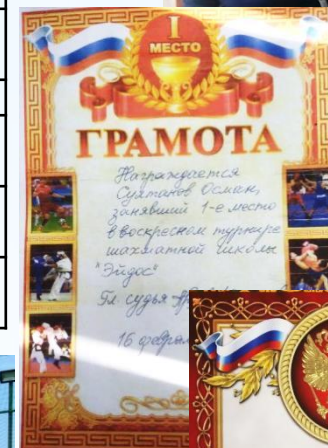 I
МЕСТО
ГРАМОТА
Награждается
Султанов Осман,
занявший 1-е место
в воскресном турнире
шахматной школы
"Эйдос"
Гл. судья
16 февраля